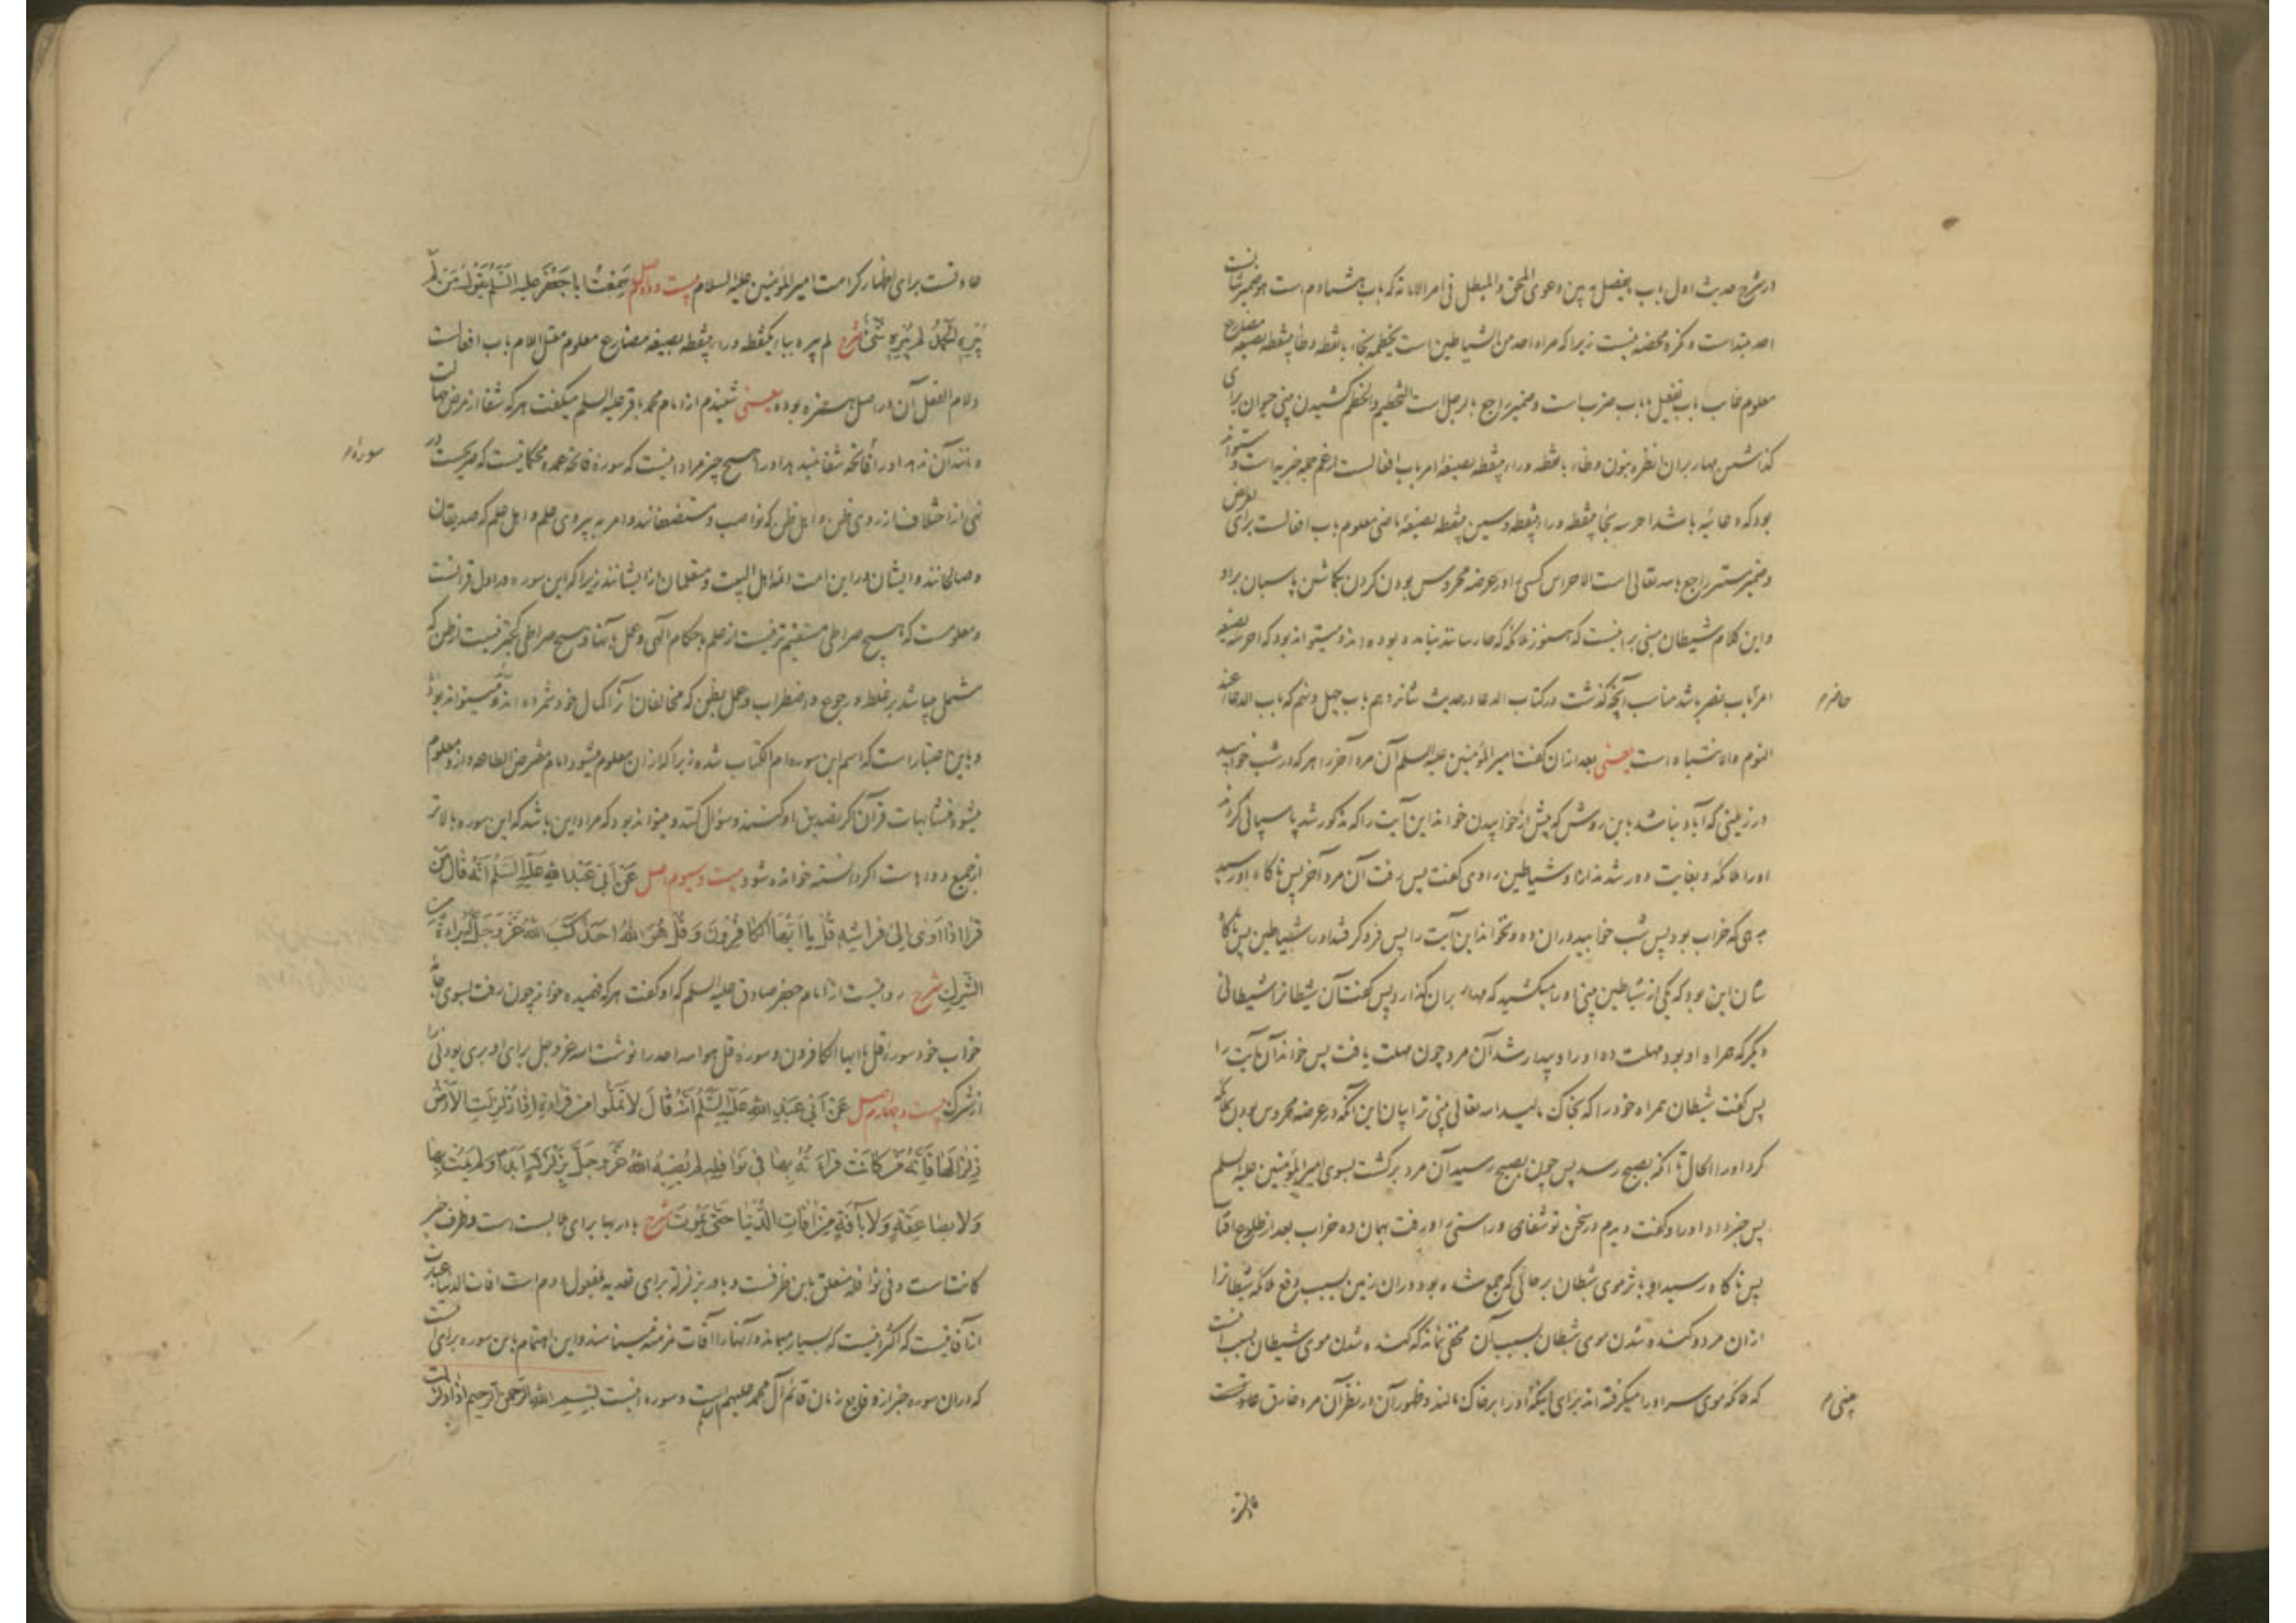 در شرح حدیث اول باب ما یفصل به بین دعوی المحق و المبطل فی امر الامامة که باب هشتادم است هو ضمیر شانست
احد مبتداست و نکره محضه نیست زیرا که مراد احد من الشیاطین است یخطمه بخاء بانقطه و طاء بینقطه بصیغه مضارع
معلوم غایب باب تفعیل یا باب ضرب است و ضمیر راجع بالرجل است التخطیم و الخطم کشیدن بینی حیوان برای
گذاشتن مهار بران انظره بنون و ظاء بانقطه و راء بینقطه بصیغه امر باب افعال است ارغم جمله خبریه است و میتواند
بود که دعائیه باشد احرسه بحاء بینقطه و راء بینقطه و سین بینقطه بصیغه ماضی معلوم باب افعالست برای تعریض
و ضمیر مستتر راجع بالله تعالی است الاحراس کسی را در عرضه محروس بودن کردن بگماشتن پاسبان براو
و این کلام شیطان مبنی براینست که هنوز ملائکه که حارسانند نیامده بوده اند و میتواند بود که احرسه بصیغه
امر باب نصر باشد مناسب آنچه گذشت در کتاب الدعا در حدیث شانزدهم باب چهل و نهم که باب الدعاء عند
النوم و الانتباه است یعنی بعد ازان گفت امیر المؤمنین علیه السلم آن مرد آخر را هر که در شب خوابید
در زمینی که آباد نباشد باین روش که پیش از خوابیدن خواند این آیت را که مذکور شد پاسبانی کردند
او را ملائکه و بغایت دور شدند ازو شیاطین راوی گفت پس رفت آن مرد آخر پس ناگاه او رسید
بدهی که خراب بود پس شب خوابید دران ده و نخواند این آیت را پس فرو گرفتند او را شیاطین پس ناگاه
شان این بود که یکی از شیاطین بینی او را میکشید که مهار بران گذارد پس گفت آن شیطانرا شیطانی
دیگر که همراه او بود مهلت ده او را و بیدار شد آن مرد چون مهلت یافت پس خواند آن آیت را
پس گفت شیطان همراه خود را که بخاک مالید الله تعالی بینی ترا پایان این آنکه در عرضه محروس بودن
کرد او را الحال تا آنکه بصبح رسد پس چون بصبح رسید آن مرد برگشت بسوی امیر المؤمنین علیه السلم
پس خبر داد او را و گفت دیدم در سخن تو شفای و راستی را و رفت بهمان ده خراب بعد از طلوع آفتاب
پس ناگاه رسید او باثر موی شیطان برحالی که جمع شده بود دران زمین بسبب دفع ملائکه شیطانرا
ازان مرد و کنده شدن موی شیطان بسبب آن مخفی نماند که کنده شدن موی شیطان بسبب آنست
که ملائکه موی سر او را میگرفته اند برای اینکه او را بر خاک مالند و ظهور آن در نظر آن مرد خارق عادتست
حاضر م
یعنی م
عادتست برای اظهار کرامت امیر المؤمنین علیه السلام بیست و دوم اصل سَمِعْتُ ابا جَعْفَرٍ علیه السَّلَمُ یَقُولُ مَنْ لَمْ
یُبْرِهِ الْحَمْدُ لَمْ یُبْرِهِ شَیْءٌ شرح لم یبره بباء یکنقطه و راء بینقطه بصیغه مضارع معلوم معتل اللام باب افعالست
و لام الفعل آن در اصل همزه بوده یعنی شنیدم از امام محمد باقر علیه السلم میگفت هر که شفا از مرض جهالت
و مانند آن ندهد او را فاتحه شفا نمیدهد او را هیچ چیز مراد اینست که سوره فاتحه عمده محکماتیست که صریحست در
نهی از اختلاف از روی ظن و اهل ظن که نواصب و مستضعفانند و امر به پیروی علم و اهل علم که صدیقان
و صالحانند و ایشان در این امت ائمه اهل البیت و متعلمان از ایشانند زیرا که این سوره در اول قرآنست
و معلومست که هیچ صراطی مستقیم تر نیست از علم باحکام الهی و عمل بآنها و هیچ صراطی کجتر نیست از ظن که
مشتمل میباشد بر غلط و رجوع و اضطراب و عمل بظن که مخالفان آنرا کمال خود شمرده اند و میتواند بود
و باین اعتبار است که اسم این سوره ام الکتاب شده زیرا که ازان معلوم میشود امام مفترض الطاعه و ازو معلوم
میشود متشابهات قرآن اگر تصدیق او کنند و سؤال کنند و میتواند بود که مراد این باشد که این سوره بالاتر
از جمیع دواهاست اگر دانسته خوانده شود بیست و سیوم اصل عَنْ اَبی عَبْدِ اللهِ عَلَیْهِ السَّلَمُ اَنَّهُ قالَ مَنْ
قَرَأَ اِذا اَوی اِلی فِراشِهِ قُلْ یا اَیُّهَا الْکافِرُونَ وَ قُلْ هُوَ اللهُ اَحَدٌ کَتَبَ اللهُ عَزَّ وَ جَلَّ لَهُ بَراءَةً مِنَ
الشِّرْکِ شرح روایتست از امام جعفر صادق علیه السلم که او گفت هر که فهمیده خواند چون رفت بسوی جامه
خواب خود سوره قل یا ایها الکافرون و سوره قل هو الله احد را نوشت الله عز و جل برای او بری بودنی را
از شرک بیست و چهارم اصل عَنْ اَبی عَبْدِ اللهِ عَلَیْهِ السَّلَمُ اَنَّهُ قالَ لا تَمَلُّوا مِنْ قِراءَةِ اِذا زُلْزِلَتِ الْاَرْضُ
زِلْزالَها فَاِنَّهُ مَنْ کانَتْ قِراءَتُهُ بِها فی نَوافِلِهِ لَمْ یُصِبْهُ اللهُ عَزَّ وَ جَلَّ بِزَلْزَلَةٍ اَبَداً وَ لَمْ یَمُتْ بِها
وَ لا بِصاعِقَةٍ وَ لا بِآفَةٍ مِنْ آفاتِ الدُّنْیا حَتّی یَمُوتَ شرح باء در بها برای ملابست است و ظرف خبر
کانت است و فی نوافله متعلق باین ظرفست و باء در بزلزلة برای تعدیه بمفعول دوم است آفات الدنیا عبارت
از آفاتیست که اکثر نیست که بسیار میماند و آنها را آفات مزمنه مینامند و این اهتمام باین سوره برای آنست
که دران سوره خبر از وقایع زمان قائم آل محمد علیهم السلم است و سوره اینست بسم الله الرحمن الرحیم اذا زلزلت
سوره م